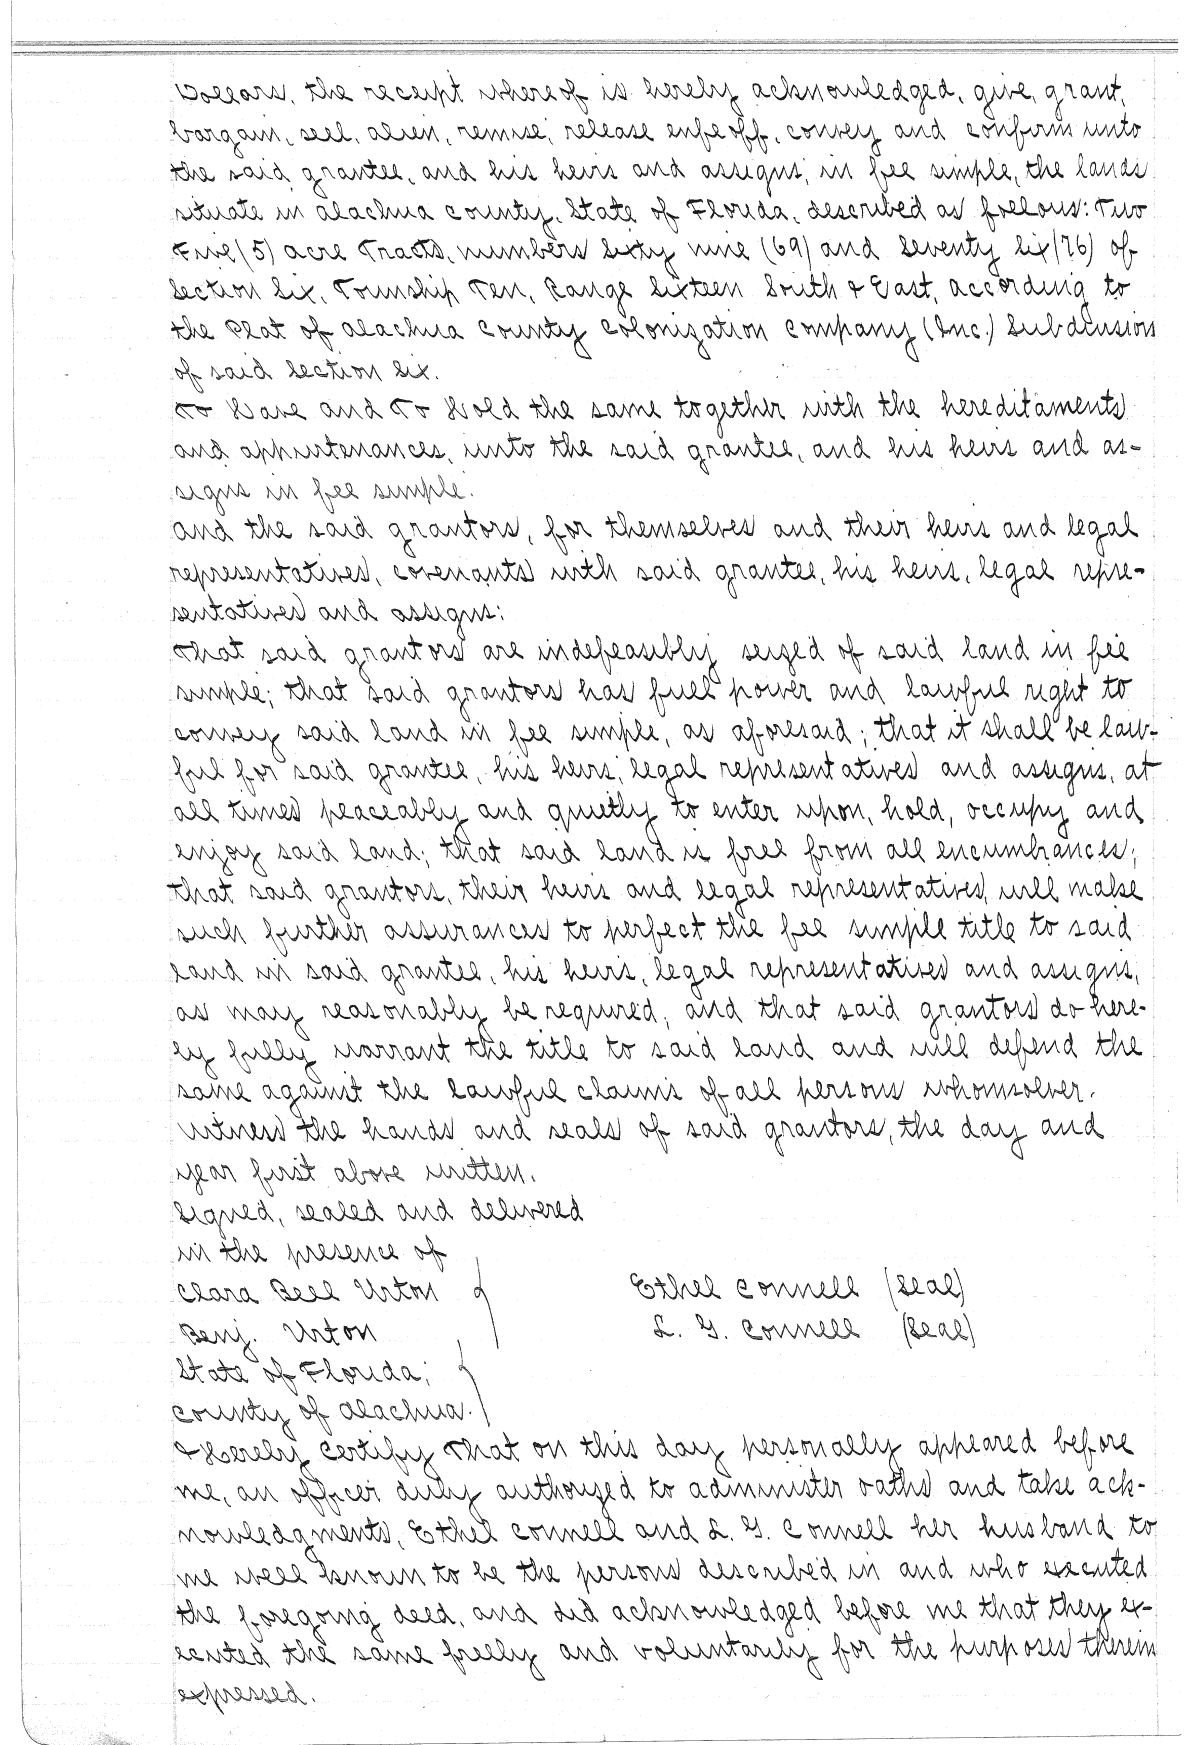 Dollars, the receipt whereof is hereby acknowledged, give, grant,
bargain, sell, alien, remise, release enfeoff, convey and confirm unto
the said grantee, and his heirs and assigns, in fee simple, the lands
situate in Alachua County, State of Florida, described as follows: Two
Five (5) acre Tracts, numbers Sixty nine (69) and Seventy Six (76) of
Section Six, Township Ten, Range Sixteen South & East, according to
the Plat of Alachua County Colonization Company (Inc.) Subdivision
of said Section Six.
To Have and To Hold the same together with the hereditaments
and appurtenances, unto the said grantee, and his heirs and as-
signs in fee simple.
And the said grantors, for themselves and their heirs and legal
representatives, covenants with said grantee, his heirs, legal repre-
sentatives and assigns:
That said grantors are indefeasibly seized of said land in fee
simple; that said grantors has full power and lawful right to
convey said land in fee simple, as aforesaid; that it shall be law-
ful for said grantee, his heirs, legal representatives and assigns, at
all times peaceably and quietly to enter upon, hold, occupy and
enjoy said land; that said land is free from all encumbrances;
that said grantors, their heirs and legal representatives, will make
such further assurances to perfect the fee simple title to said
land in said grantee, his heirs, legal representatives and assigns,
as may reasonably be required; and that said grantors do here-
by fully warrant the title to said land and will defend the
same against the lawful claims of all persons whomsoever.
Witness the hands and seals of said grantors, the day and
year first above written.
Signed, sealed and delivered
in the presence of
Clara Bell Urton Ethel Connell (Seal)
Benj. Urton L. G. Connell (Seal)
State of Florida;
County of Alachua.
I Hereby Certify That on this day personally appeared before
me, an officer duly authorized to administer oaths and take ack-
nowledgments, Ethel Connell and L. G. Connell her husband to
me well known to be the persons described in and who executed
the foregoing deed, and did acknowledged before me that they ex-
ecuted the same freely and voluntarily for the purposes therein
expressed.